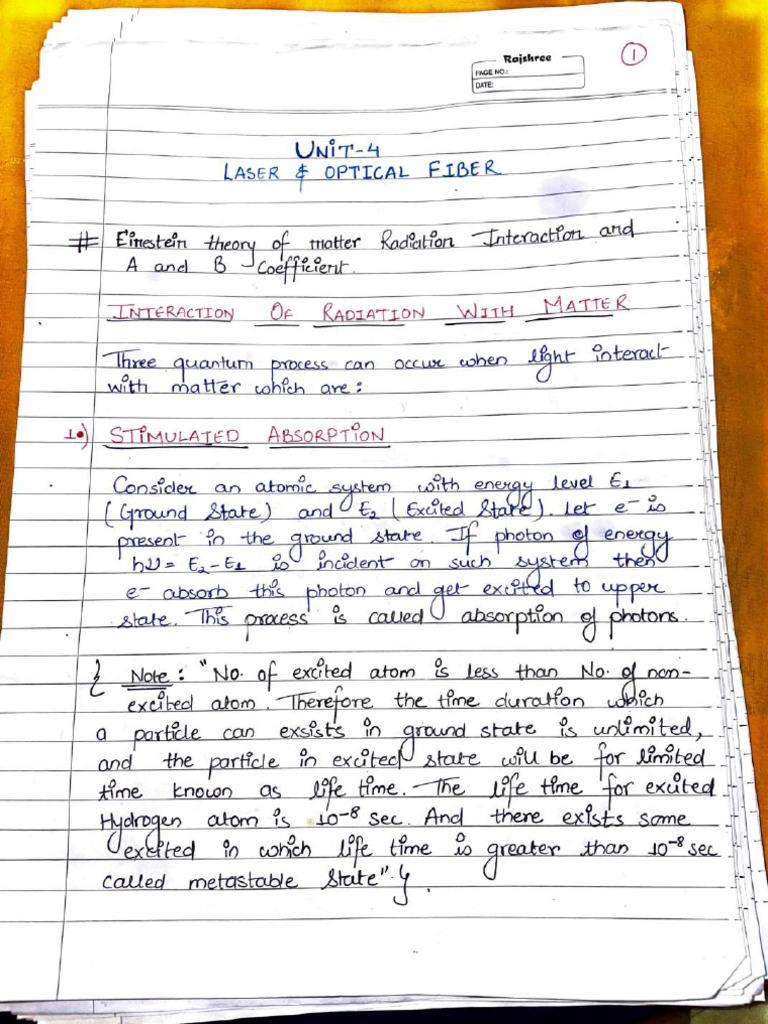 Rajshree
PAGE NO.:
DATE:
1
UNIT-4
LASER & OPTICAL FIBER
# Einestein theory of matter Radiation Interaction and
A and B Coefficient.
INTERACTION OF RADIATION WITH MATTER
Three quantum process can occur when light interact
with matter which are:
1.) STIMULATED ABSORPTION
Consider an atomic system with energy level E1
(Ground State) and E2 (Excited State). Let e- is
present in the ground state. If photon of energy
hν = E2-E1 is incident on such system then
e- absorb this photon and get excited to upper
state. This process is called absorption of photons.
{ Note: "No. of excited atom is less than No. of non-
excited atom. Therefore the time duration which
a particle can exsists in ground state is unlimited,
and the particle in excited state will be for limited
time known as life time. The life time for excited
Hydrogen atom is 10-8 sec. And there exists some
excited in which life time is greater than 10-8 sec
called metastable state". }